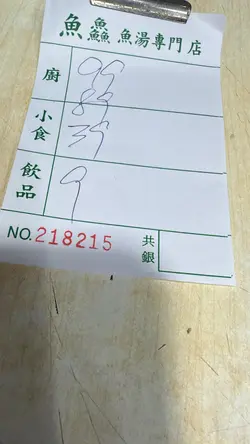 魚鱻魚湯專門店
廚
小食
飲品
9
NO.218215
共銀